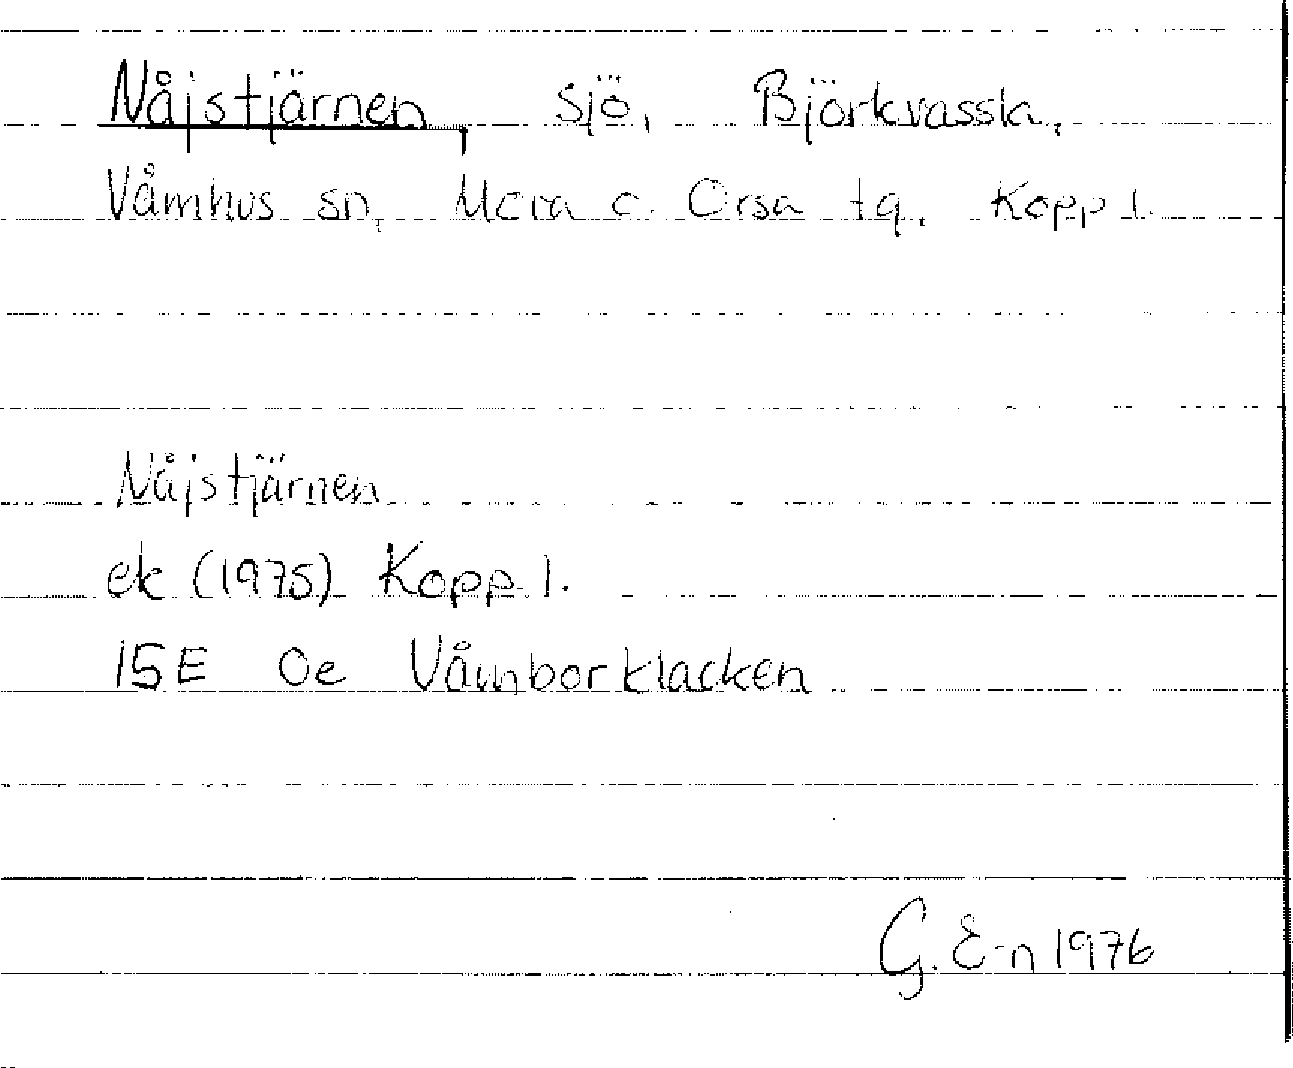 Nåjstjärnen, sjö, Björkvassla,
Våmhus sn, Mora o. Orsa tg. Kopp l.
Nåjstjärnen
ek (1975) Kopp. l.
15E 0e Våmborklacken
G. E-n 1976